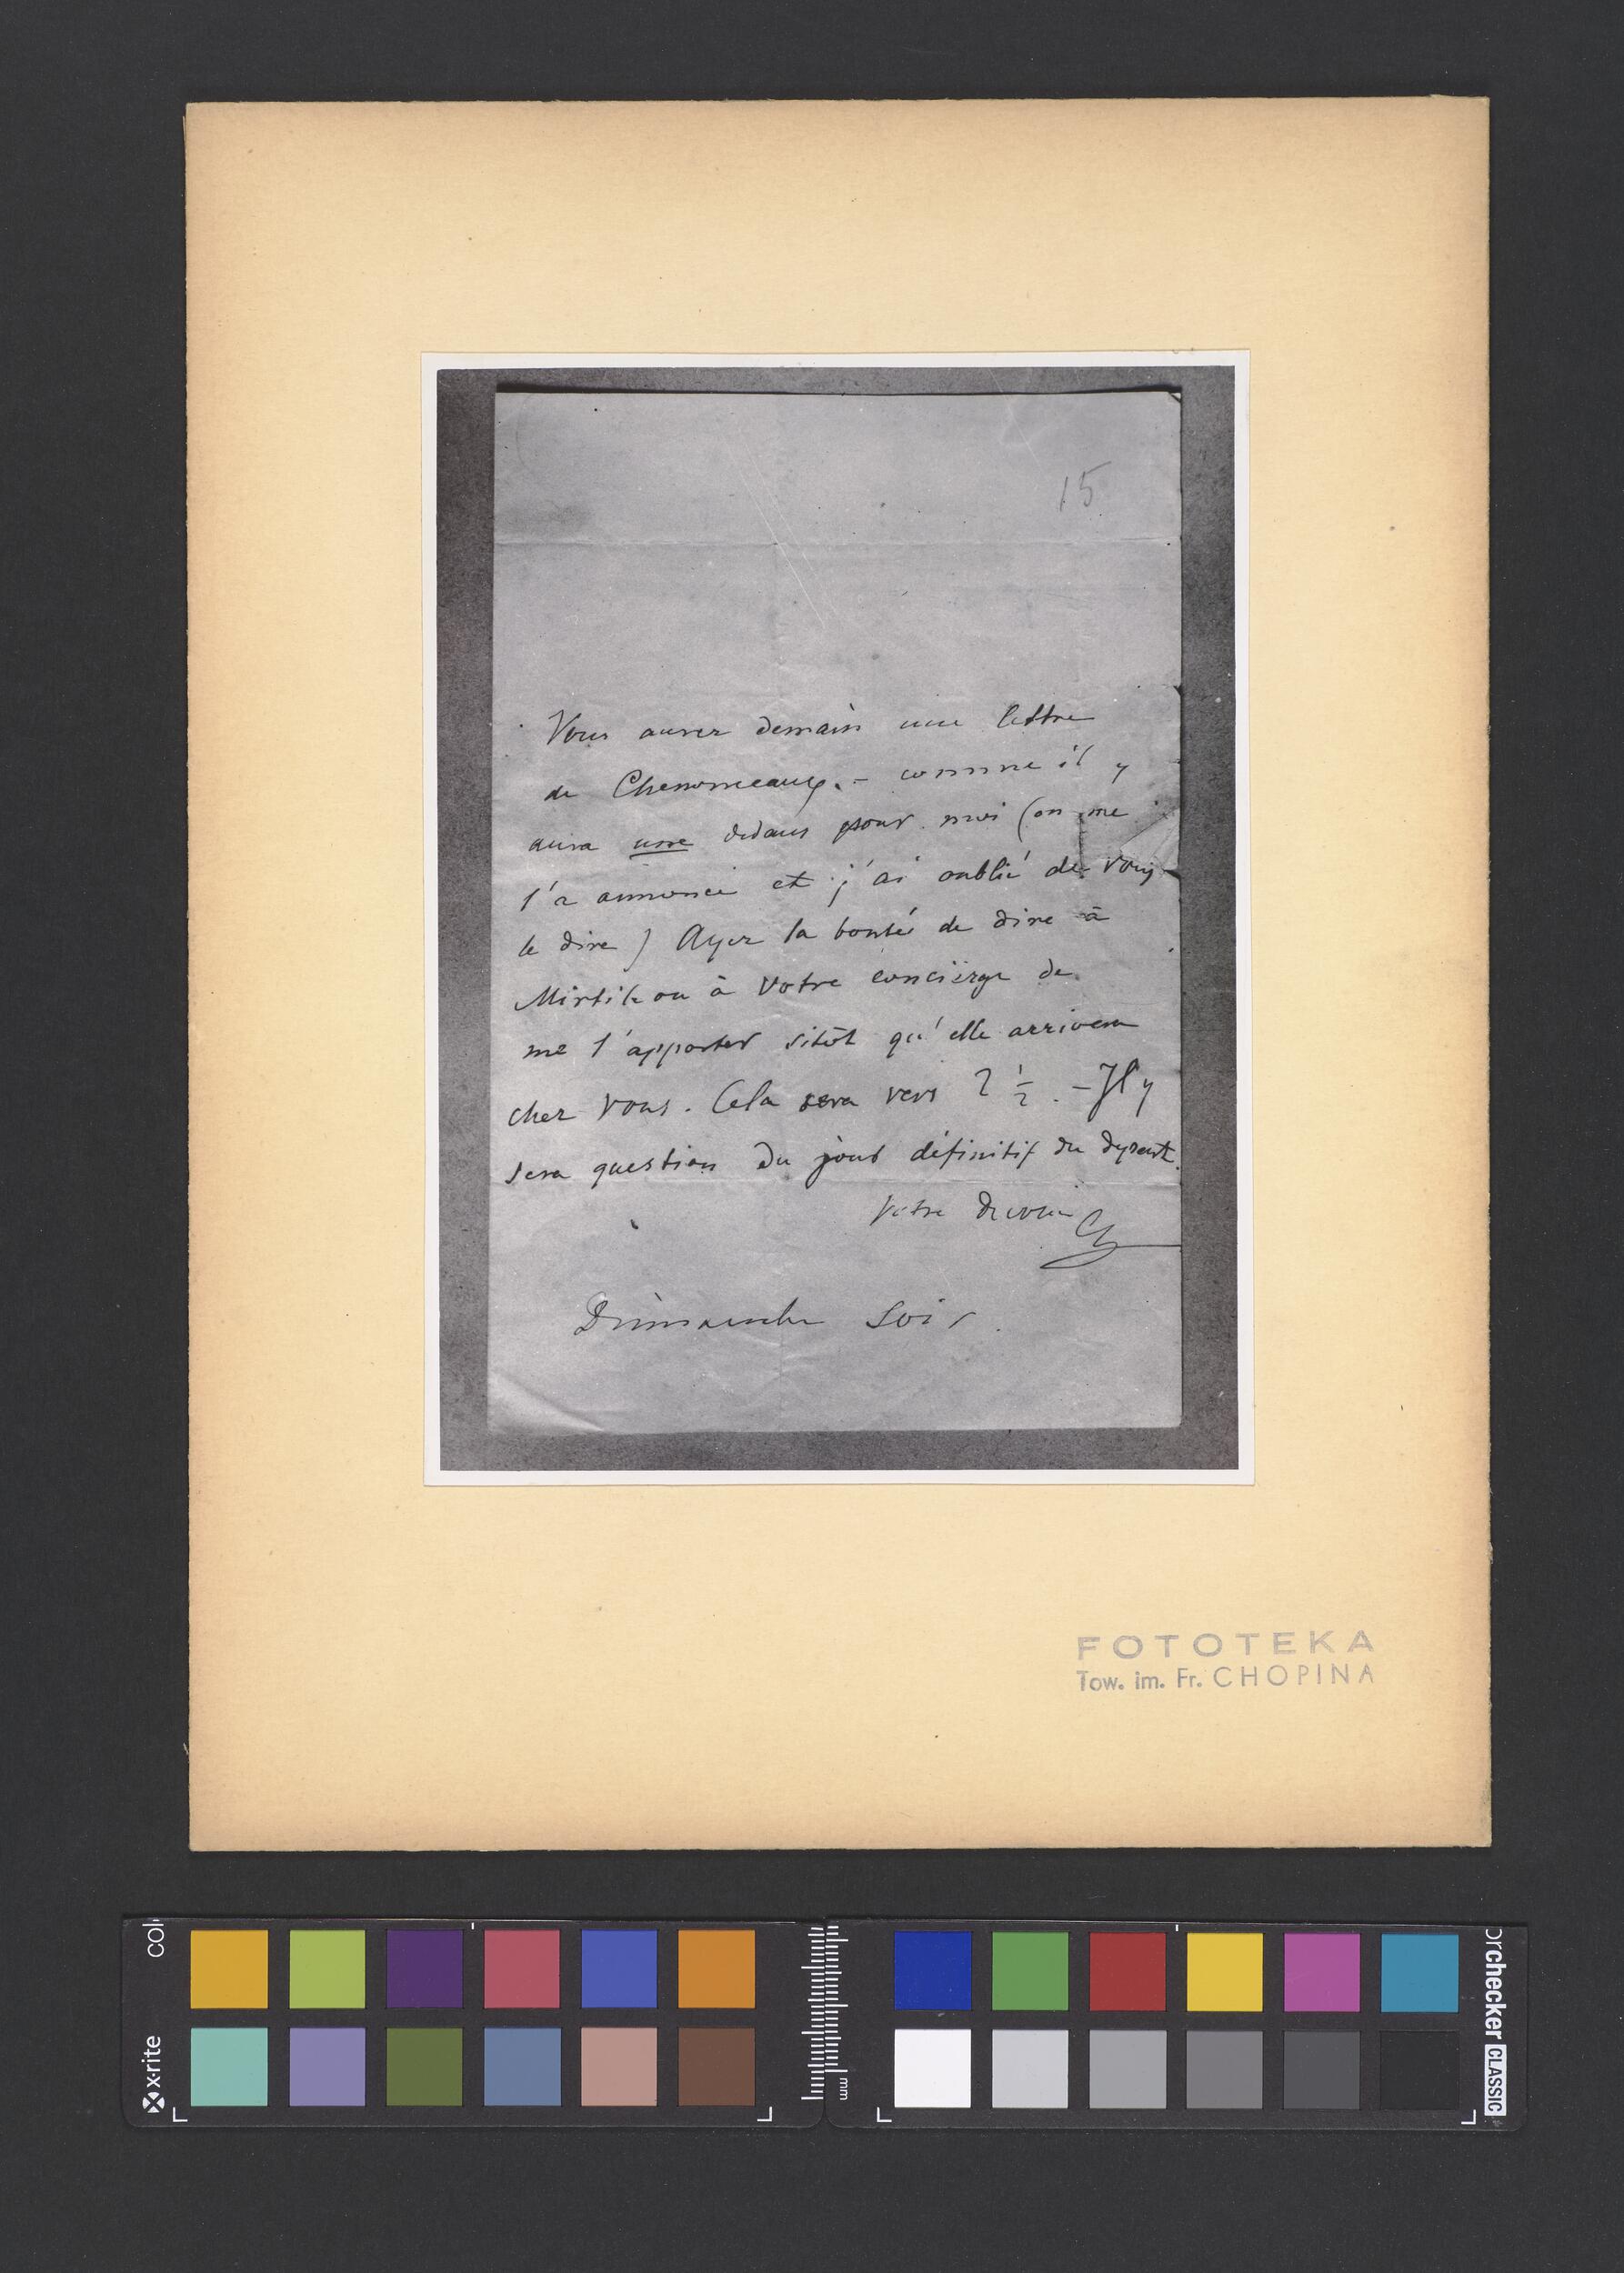 15
Vous aurez demain une lettre
de Chenonceaux. – comme il y
aura une dedans pour moi (on me
l'a annoncé et j'ai oublié de vous
le dire) Ayez la bonté de dire à
Mirtil ou à votre concièrge de
me l'apporter sitôt qu'elle arrivera
chez vous. Cela sera vers 2 1/2. – Il y
sera question du jour définitif du départ.
Votre Ch
Dimanche soir.
FOTOTEKA
Tow. im. Fr. CHOPINA
x-rite
col
mm
orchecker CLASSIC